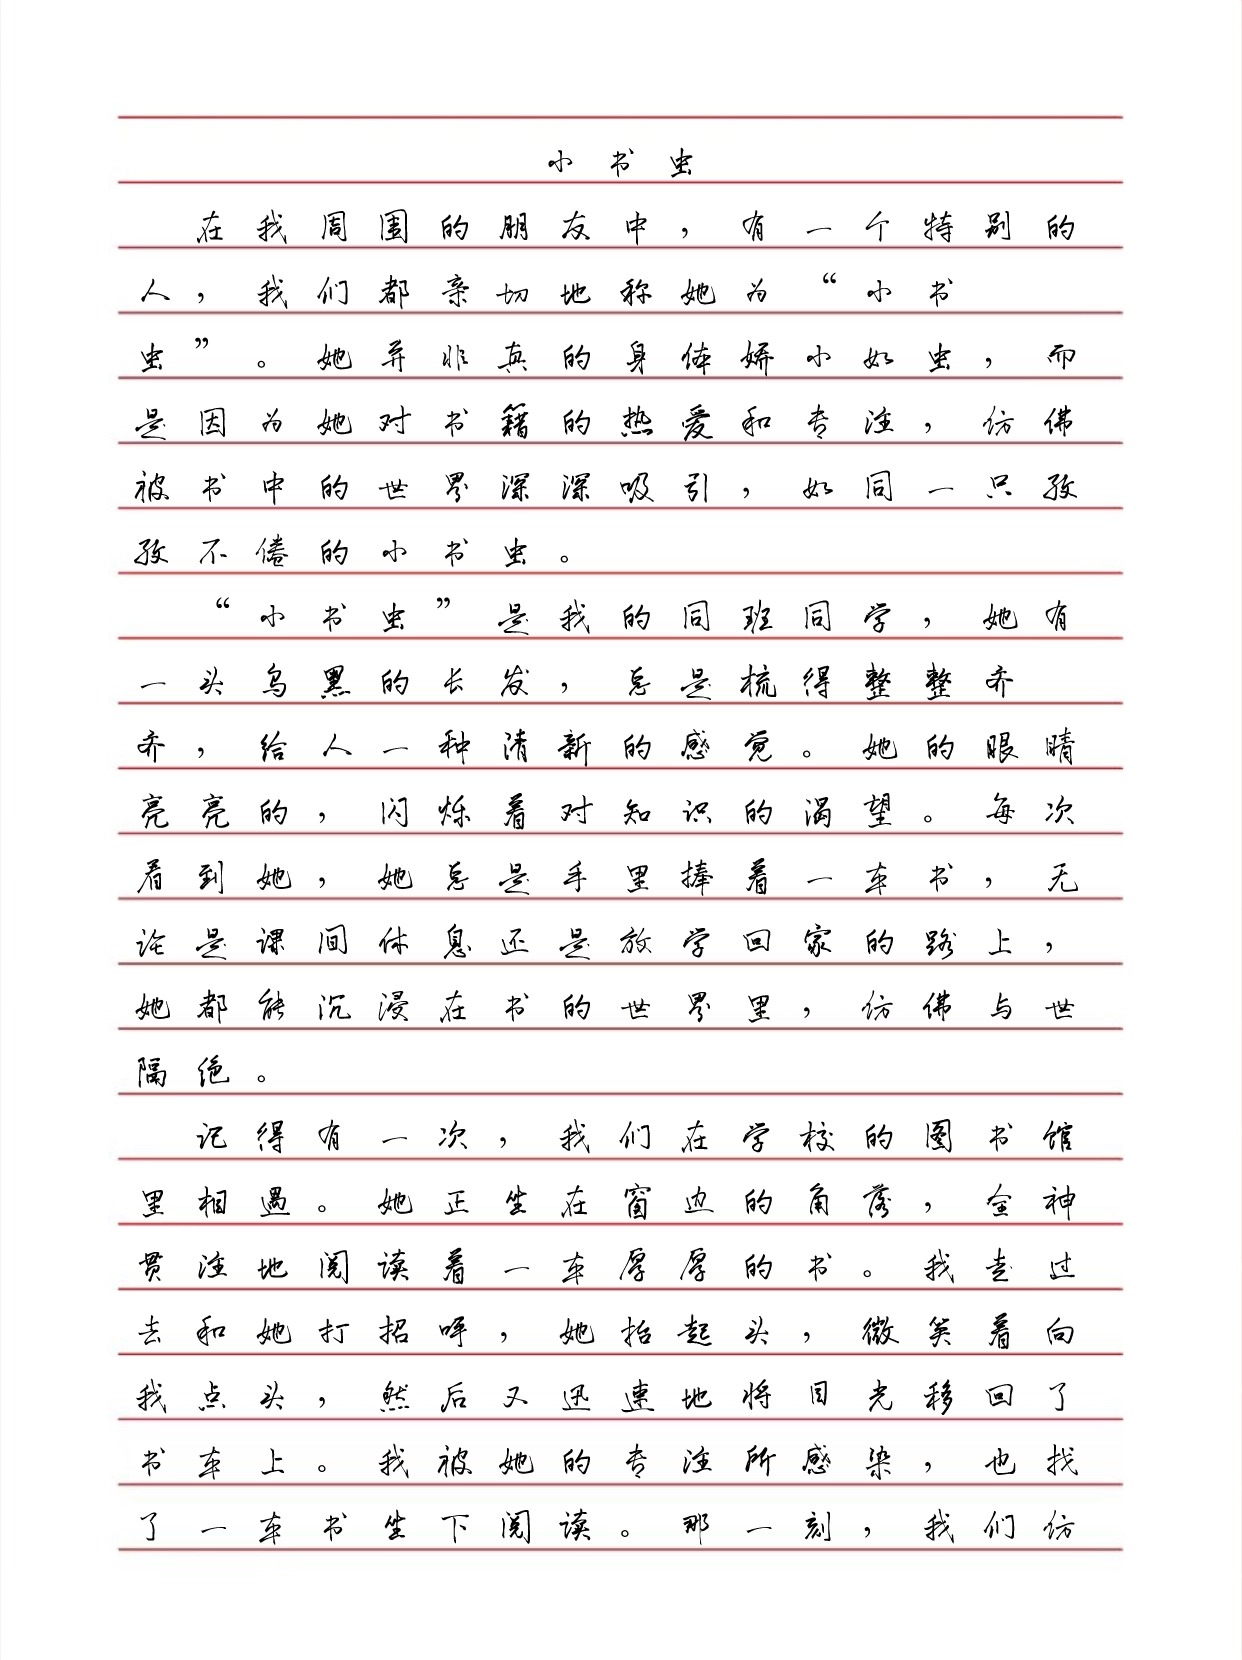 小书虫
在我周围的朋友中，有一个特别的
人，我们都亲切地称她为“小书
虫”。她并非真的身体娇小如虫，而
是因为她对书籍的热爱和专注，仿佛
被书中的世界深深吸引，如同一只孜
孜不倦的小书虫。
“小书虫”是我的同班同学，她有
一头乌黑的长发，总是梳得整整齐
齐，给人一种清新的感觉。她的眼睛
亮亮的，闪烁着对知识的渴望。每次
看到她，她总是手里捧着一本书，无
论是课间休息还是放学回家的路上，
她都能沉浸在书的世界里，仿佛与世
隔绝。
记得有一次，我们在学校的图书馆
里相遇。她正坐在窗边的角落，全神
贯注地阅读着一本厚厚的书。我走过
去和她打招呼，她抬起头，微笑着向
我点头，然后又迅速地将目光移回了
书本上。我被她的专注所感染，也找
了一本书坐下阅读。那一刻，我们仿